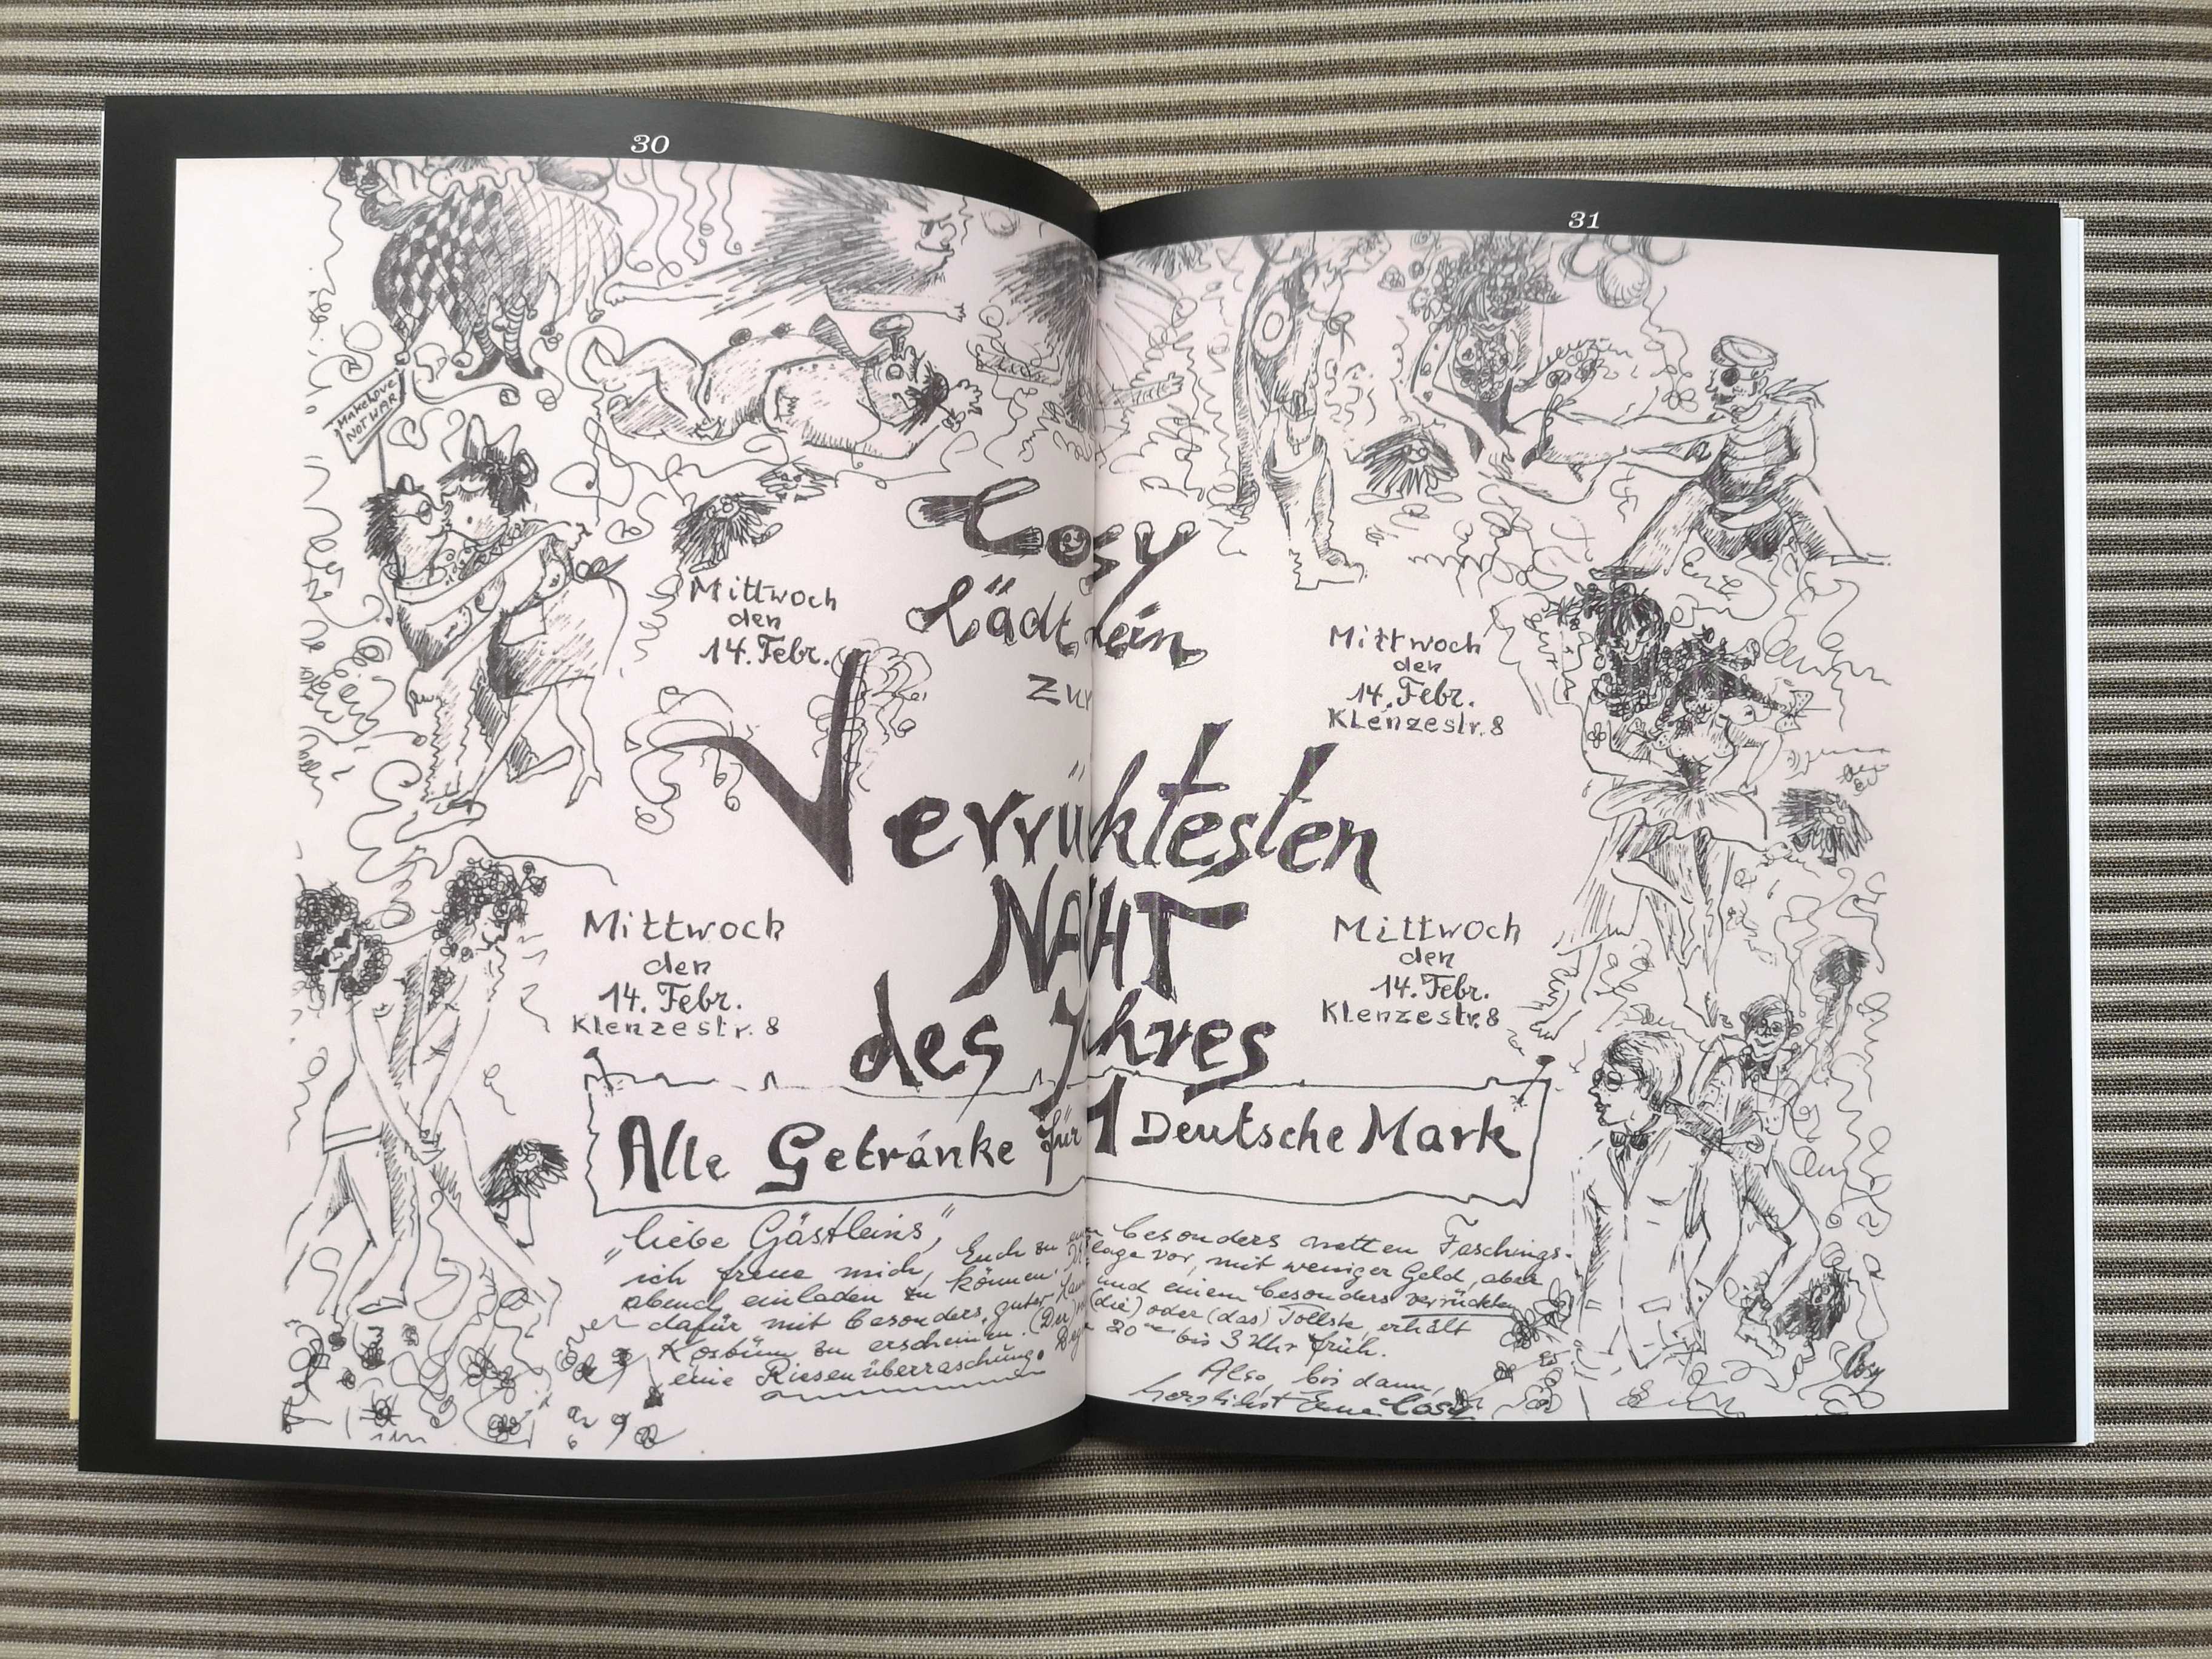 30
31
MAKE LOVE
NOT WAR
Cosy
Lädt ein
zur
Verrüktesten
NACHT
des Jahres
Mittwoch
den
14. Febr.
Mittwoch
den
14. Febr.
Klenzestr. 8
Mittwoch
den
14. Febr.
Klenzestr. 8
Mittwoch
den
14. Febr.
Klenzestr. 8
Alle Getränke für 1 Deutsche Mark
„liebe Gästleins",
ich freue mich, Euch zu besonders netten Faschings-
abend einladen zu können. vor, mit weniger Geld, aber
dafür mit besonders guter und einem besonders verrückten
Kostüm zu erscheinen. (Der) (die) oder (das) Tollste, erhält
eine Riesenüberraschung. 20 bis 3 Uhr früh.
Also, bis dann,
herzlichst Eure Cosy
Cosy